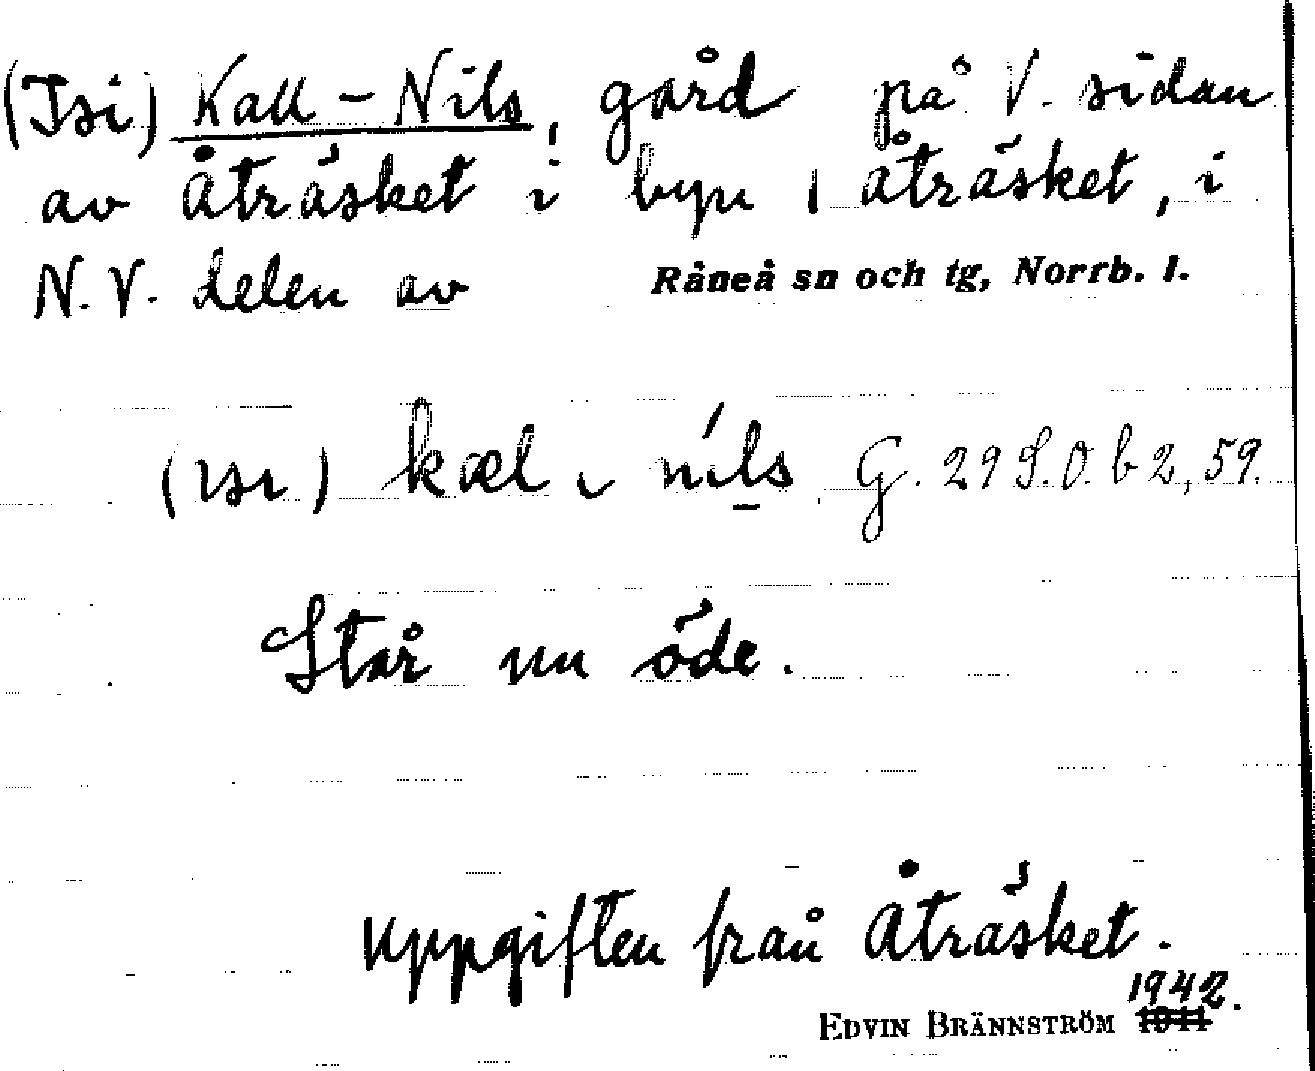 (Isi) Kall-Nils, gård på V. sidan
av Åträsket i byn Åträsket, i
N.V. delen av Råneå sn och tg, Norrb. l.
kæl nils G. 29 S.D. b 2, 59.
Står nu öde.
Uppgiften från Åträsket.
1942.
EDVIN BRÄNNSTRÖM 1941